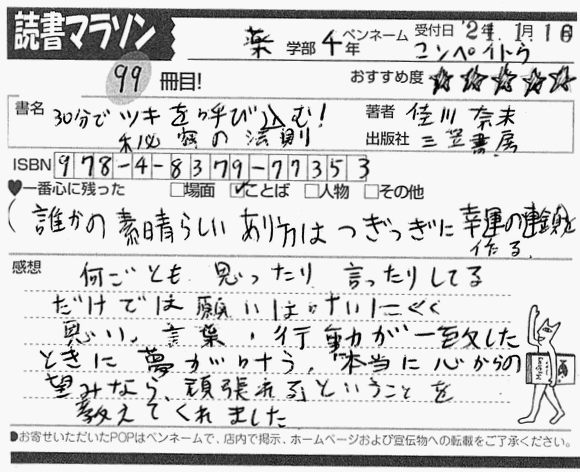 読書マラソン
薬 学部 4 年
ペンネーム コンペイトウ
受付日 '24.1月11日
99 冊目!
おすすめ度 ★★★★★
書名 30分でツキを呼び込む!
秘密の法則
著者 佳川 奈未
出版社 三笠書房
ISBN 978-4-8379-77353
♥一番心に残った □場面 ☑ことば □人物 □その他
(誰かの素晴らしいあり方はつぎつぎに幸運の連鎖を
作る.
感想 何ごとも 思ったり 言ったりしてる
だけでは 願いは叶いにくく
思い、言葉、行動が一致した
ときに夢が叶う、“本当に心からの
望みなら、頑張れる”ということを
教えてくれました
●お寄せいただいたPOPはペンネームで、店内で掲示、ホームページおよび宣伝物への転載をご了承ください。